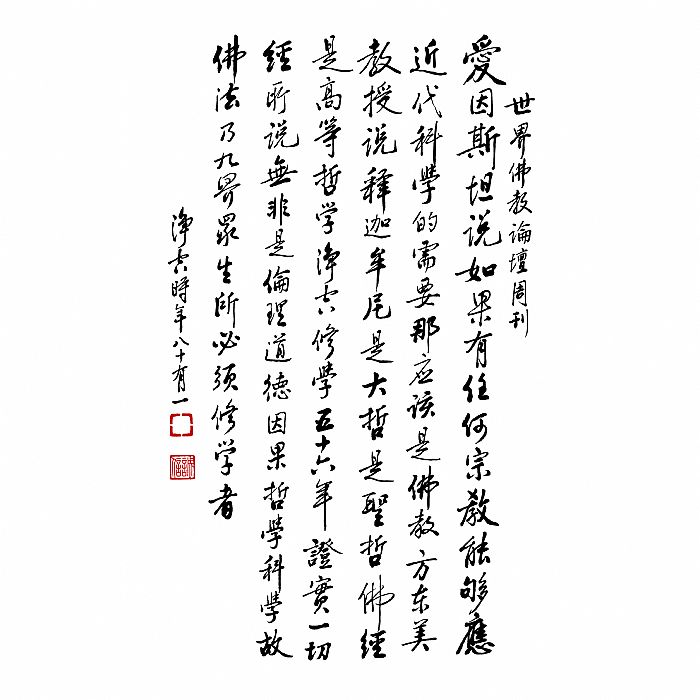 世界佛教論壇周刊
愛因斯坦说如果有任何宗教能够應
近代科學的需要那应该是佛教方东美
教授说释迦牟尼是大哲是聖哲佛經
是高等哲学淨空修學五十六年證實一切
經所说無非是倫理道德因果哲學科學故
佛法乃九界眾生所必须修学者
淨空時年八十有一